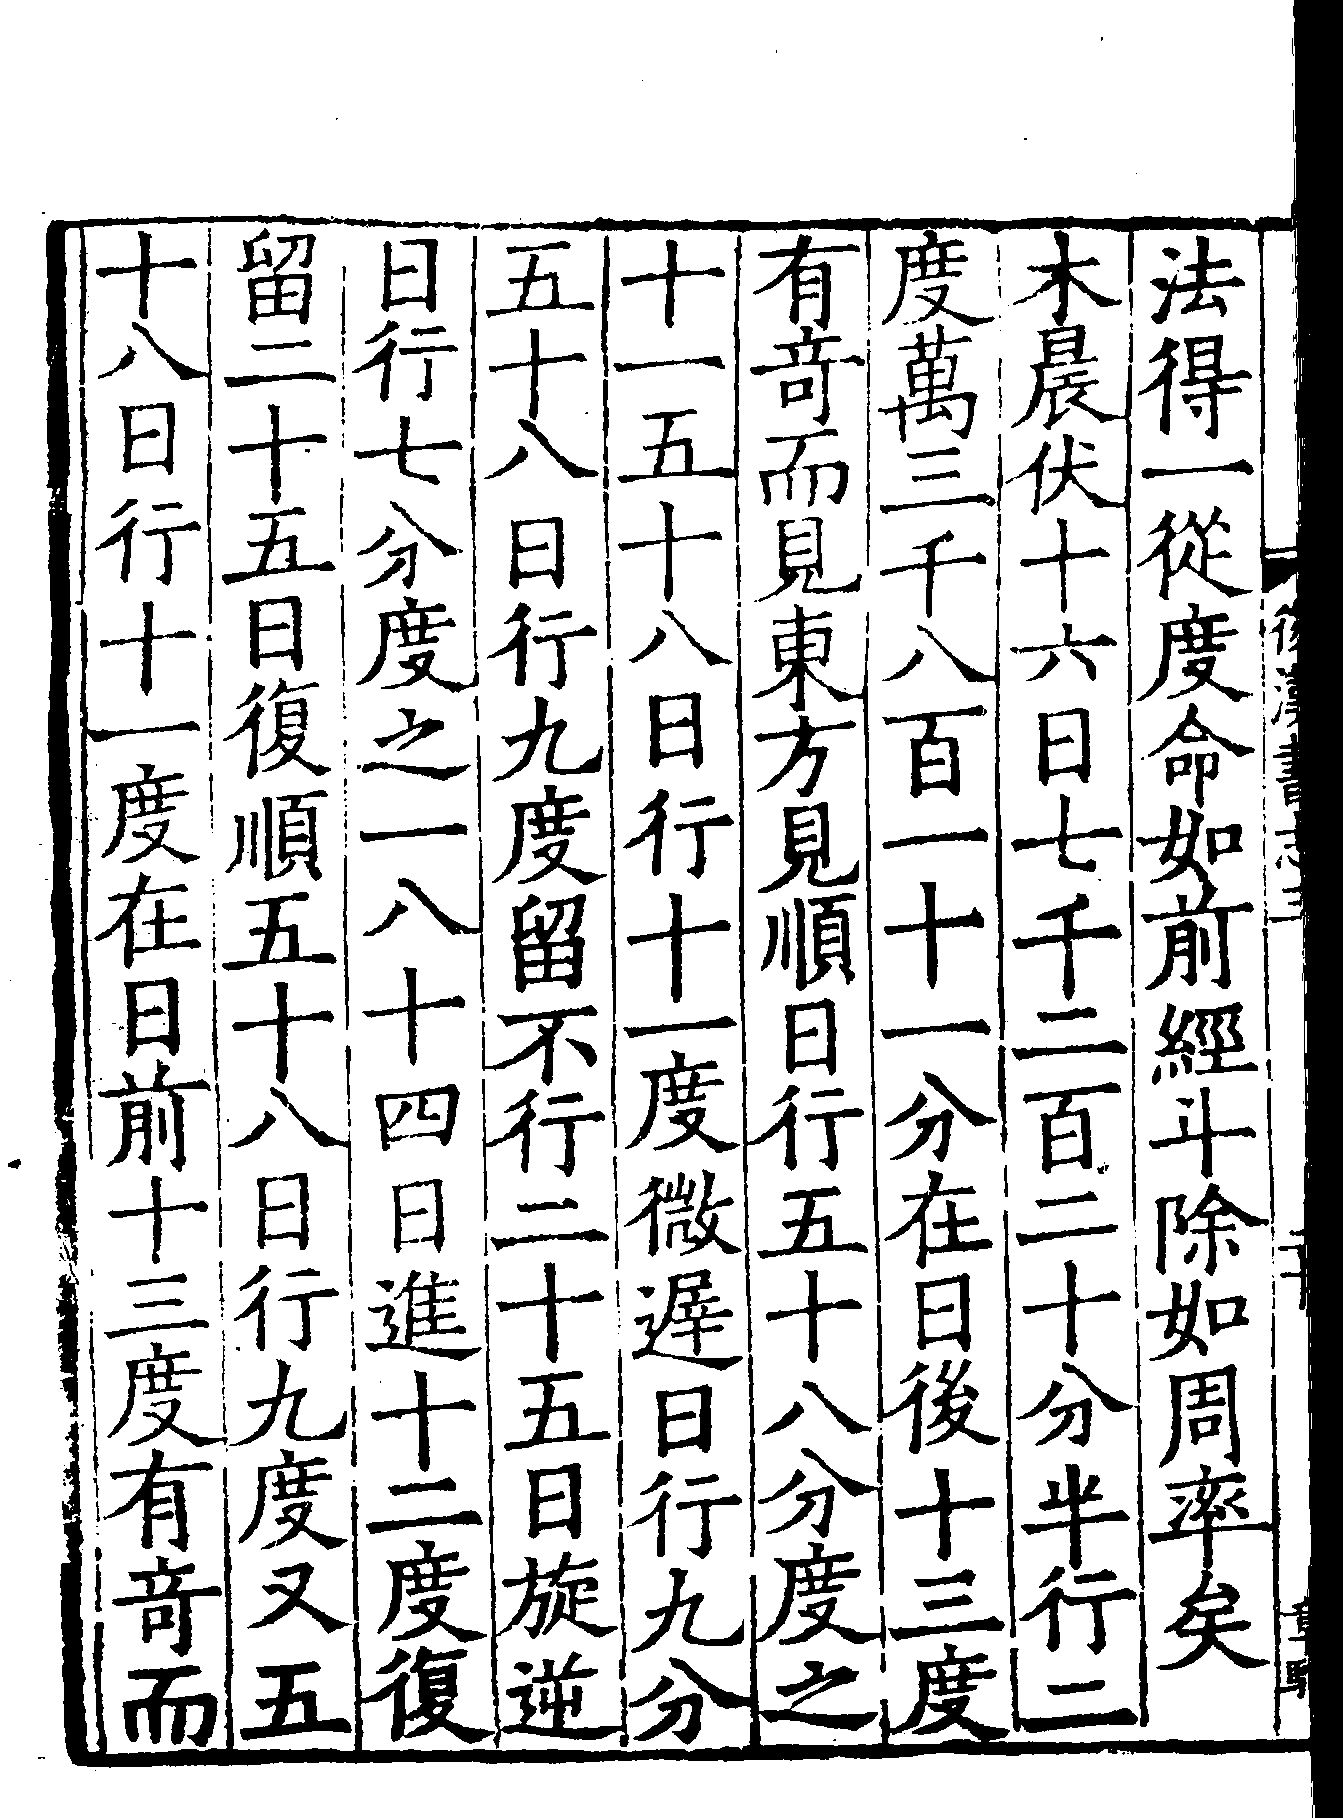 法得一從度命如前經斗除如周率矣
木晨伏十六日七千二百二十分半行二
度萬三千八百一十一分在日後十三度
有竒而見東方見順日行五十八分度之
十一五十八日行十一度微遟日行九分
五十八日行九度留不行二十五日旋逆
日行七分度之一八十四日進十二度復
留二十五日復順五十八日行九度又五
十八日行十一度在日前十三度有竒而